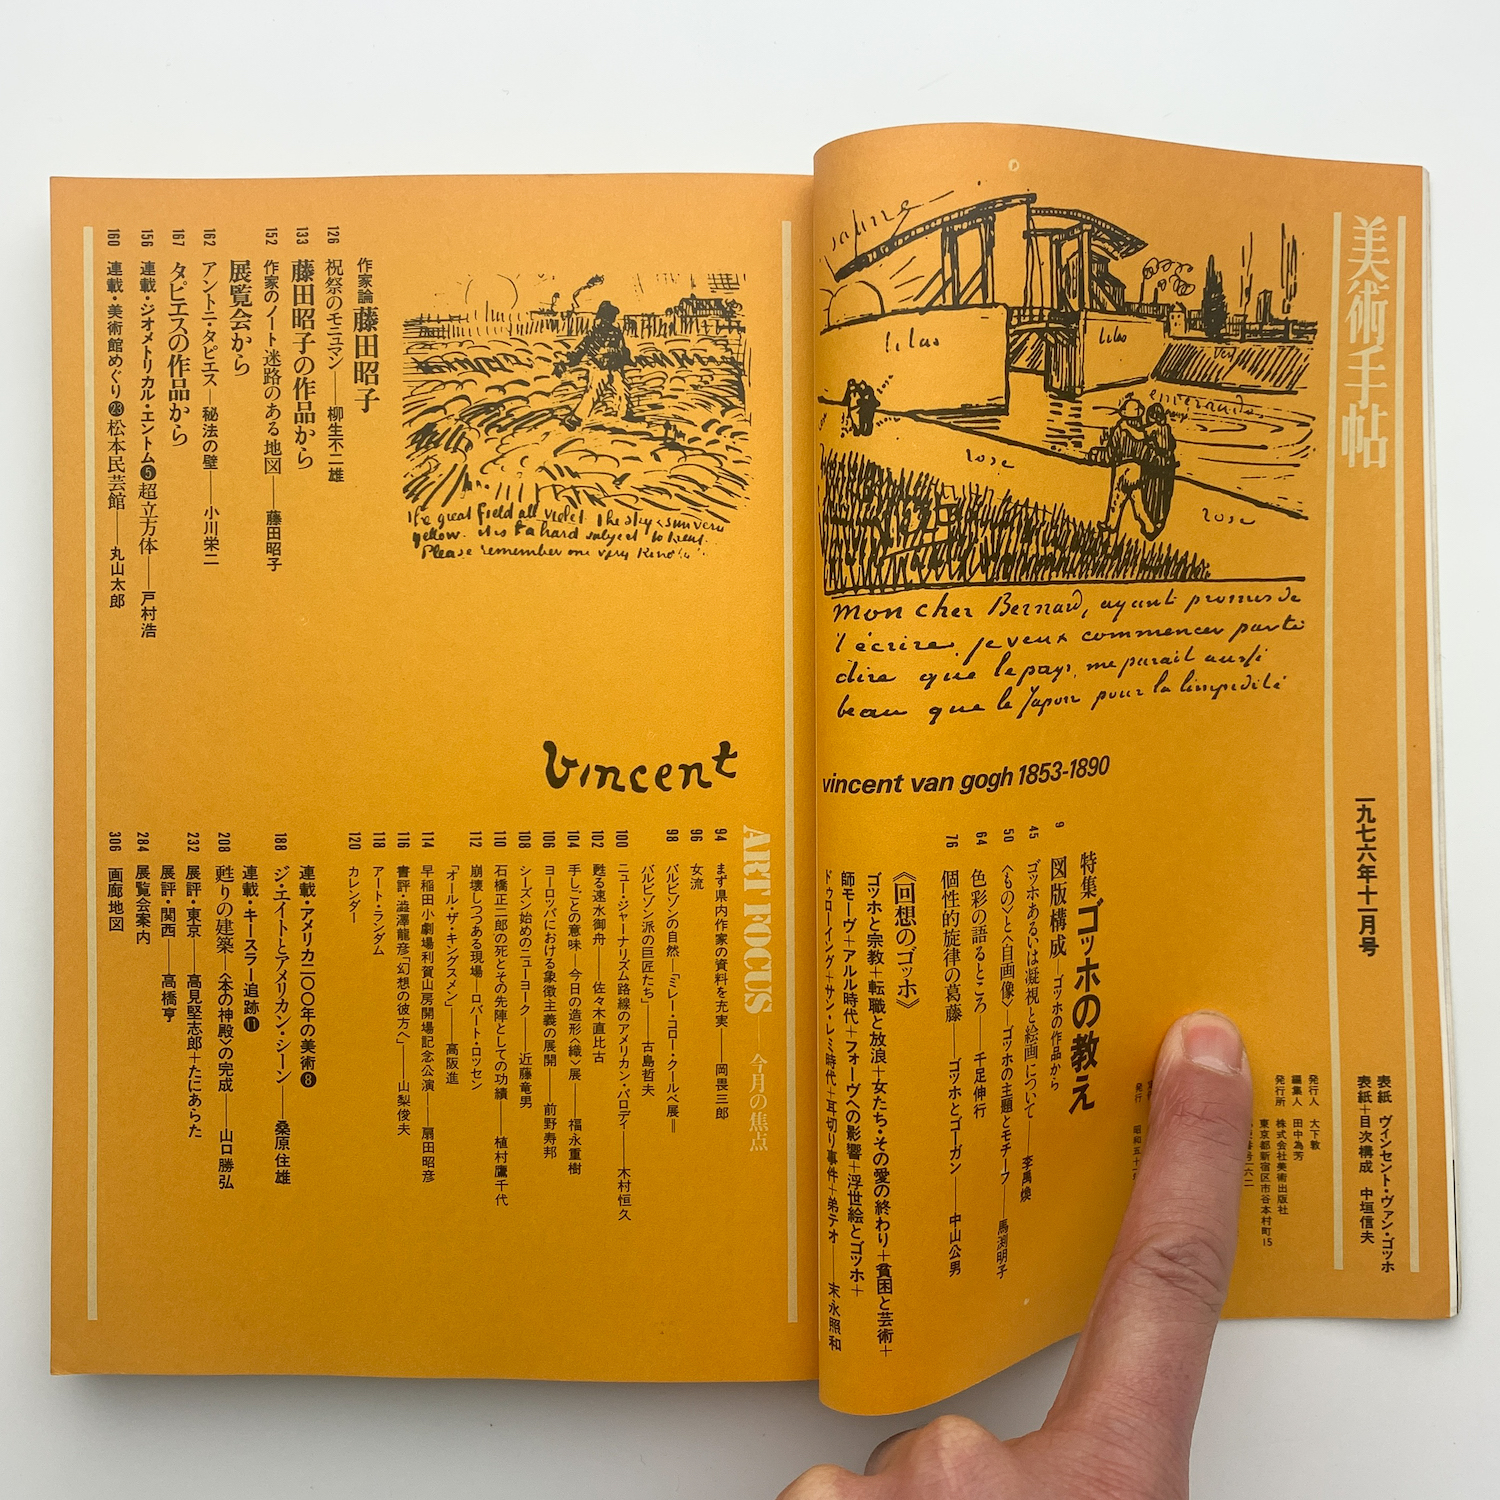 美術手帖
一九七六年十一月号
表紙 ヴィンセント・ヴァン・ゴッホ
表紙+目次構成 中垣信夫
発行人 大下敦
編集人 田中為芳
発行所 株式会社美術出版社
東京都新宿区市谷本村町15
発行
lilas
lilas
rose
rose
mon cher Bernard, ayant promis de
t'écrire je veux commencer par te
dire que le pays me parait aussi
beau que le Japon pour la limpidité
vincent van gogh 1853-1890
特集 ゴッホの教え
9 図版構成—ゴッホの作品から
45 ゴッホあるいは凝視と絵画について——李禹煥
50 〈もの〉と〈自画像〉—ゴッホの主題とモチーフ——馬渕明子
64 色彩の語るところ——千足伸行
76 個性的旋律の葛藤——ゴッホとゴーガン——中山公男
《回想のゴッホ》
ゴッホと宗教+転職と放浪+女たち・その愛の終わり+貧困と芸術+
師モーヴ+アルル時代+フォーヴへの影響+浮世絵とゴッホ+
ドゥローイング+サン・レミ時代+耳切り事件+弟テオ——末永照和
The great field all violet the sky & sun very
yellow. it is a hard subject to treat.
Please remember me very kindly
作家論 藤田昭子
126 祝祭のモニュマン——柳生不二雄
133 藤田昭子の作品から
152 作家のノート 迷路のある地図——藤田昭子
展覧会から
162 アントニ・タピエス—秘法の壁——小川栄二
167 タピエスの作品から
156 連載・ジオメトリカル・エントム❺超立方体——戸村浩
160 連載・美術館めぐり㉓松本民芸館——丸山太郎
Vincent
ART FOCUS——今月の焦点
94 まず県内作家の資料を充実——岡畏三郎
96 女流
98 バルビゾンの自然—「ミレー・コロー・クールベ展=
バルビゾン派の巨匠たち」——古島哲夫
100 ニュー・ジャーナリズム路線のアメリカン・パロディ——木村恒久
102 甦る速水御舟——佐々木直比古
104 手しごとの意味—今日の造形〈織〉展——福永重樹
106 ヨーロッパにおける象徴主義の展開——前野寿邦
108 シーズン始めのニューヨーク——近藤竜男
110 石橋正二郎の死とその先陣としての功績——植村鷹千代
112 崩壊しつつある現場—ロバート・ロッセン
「オール・ザ・キングスメン」——高阪進
114 早稲田小劇場利賀山房開場記念公演——扇田昭彦
116 書評・澁澤龍彦「幻想の彼方へ」——山梨俊夫
118 アート・ランダム
120 カレンダー
連載・アメリカ二〇〇年の美術❽
188 ジ・エイトとアメリカン・シーン——桑原住雄
連載・キースラー追跡⓫
208 甦りの建築—〈本の神殿〉の完成——山口勝弘
232 展評・東京——高見堅志郎+たにあらた
展評・関西——高橋亨
284 展覧会案内
306 画廊地図